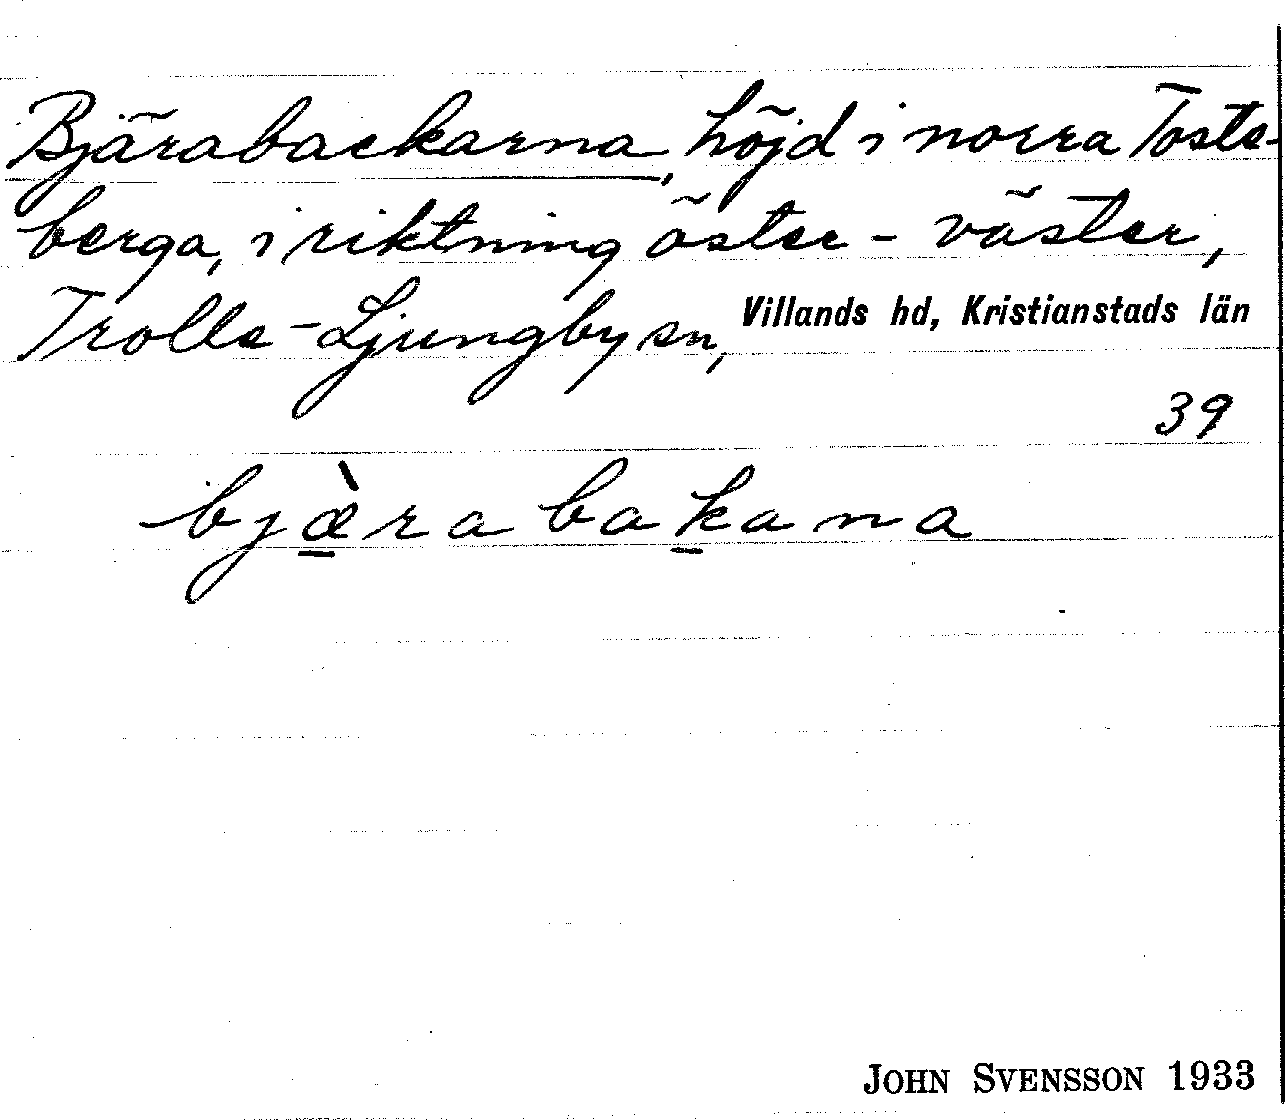 Bjärabackarna, höjd i norra Toste-
berga, i riktning öster - väster,
Trolle-Ljungby sn, Villands hd, Kristianstads län
39
bjæ̀rabakana
JOHN SVENSSON 1933